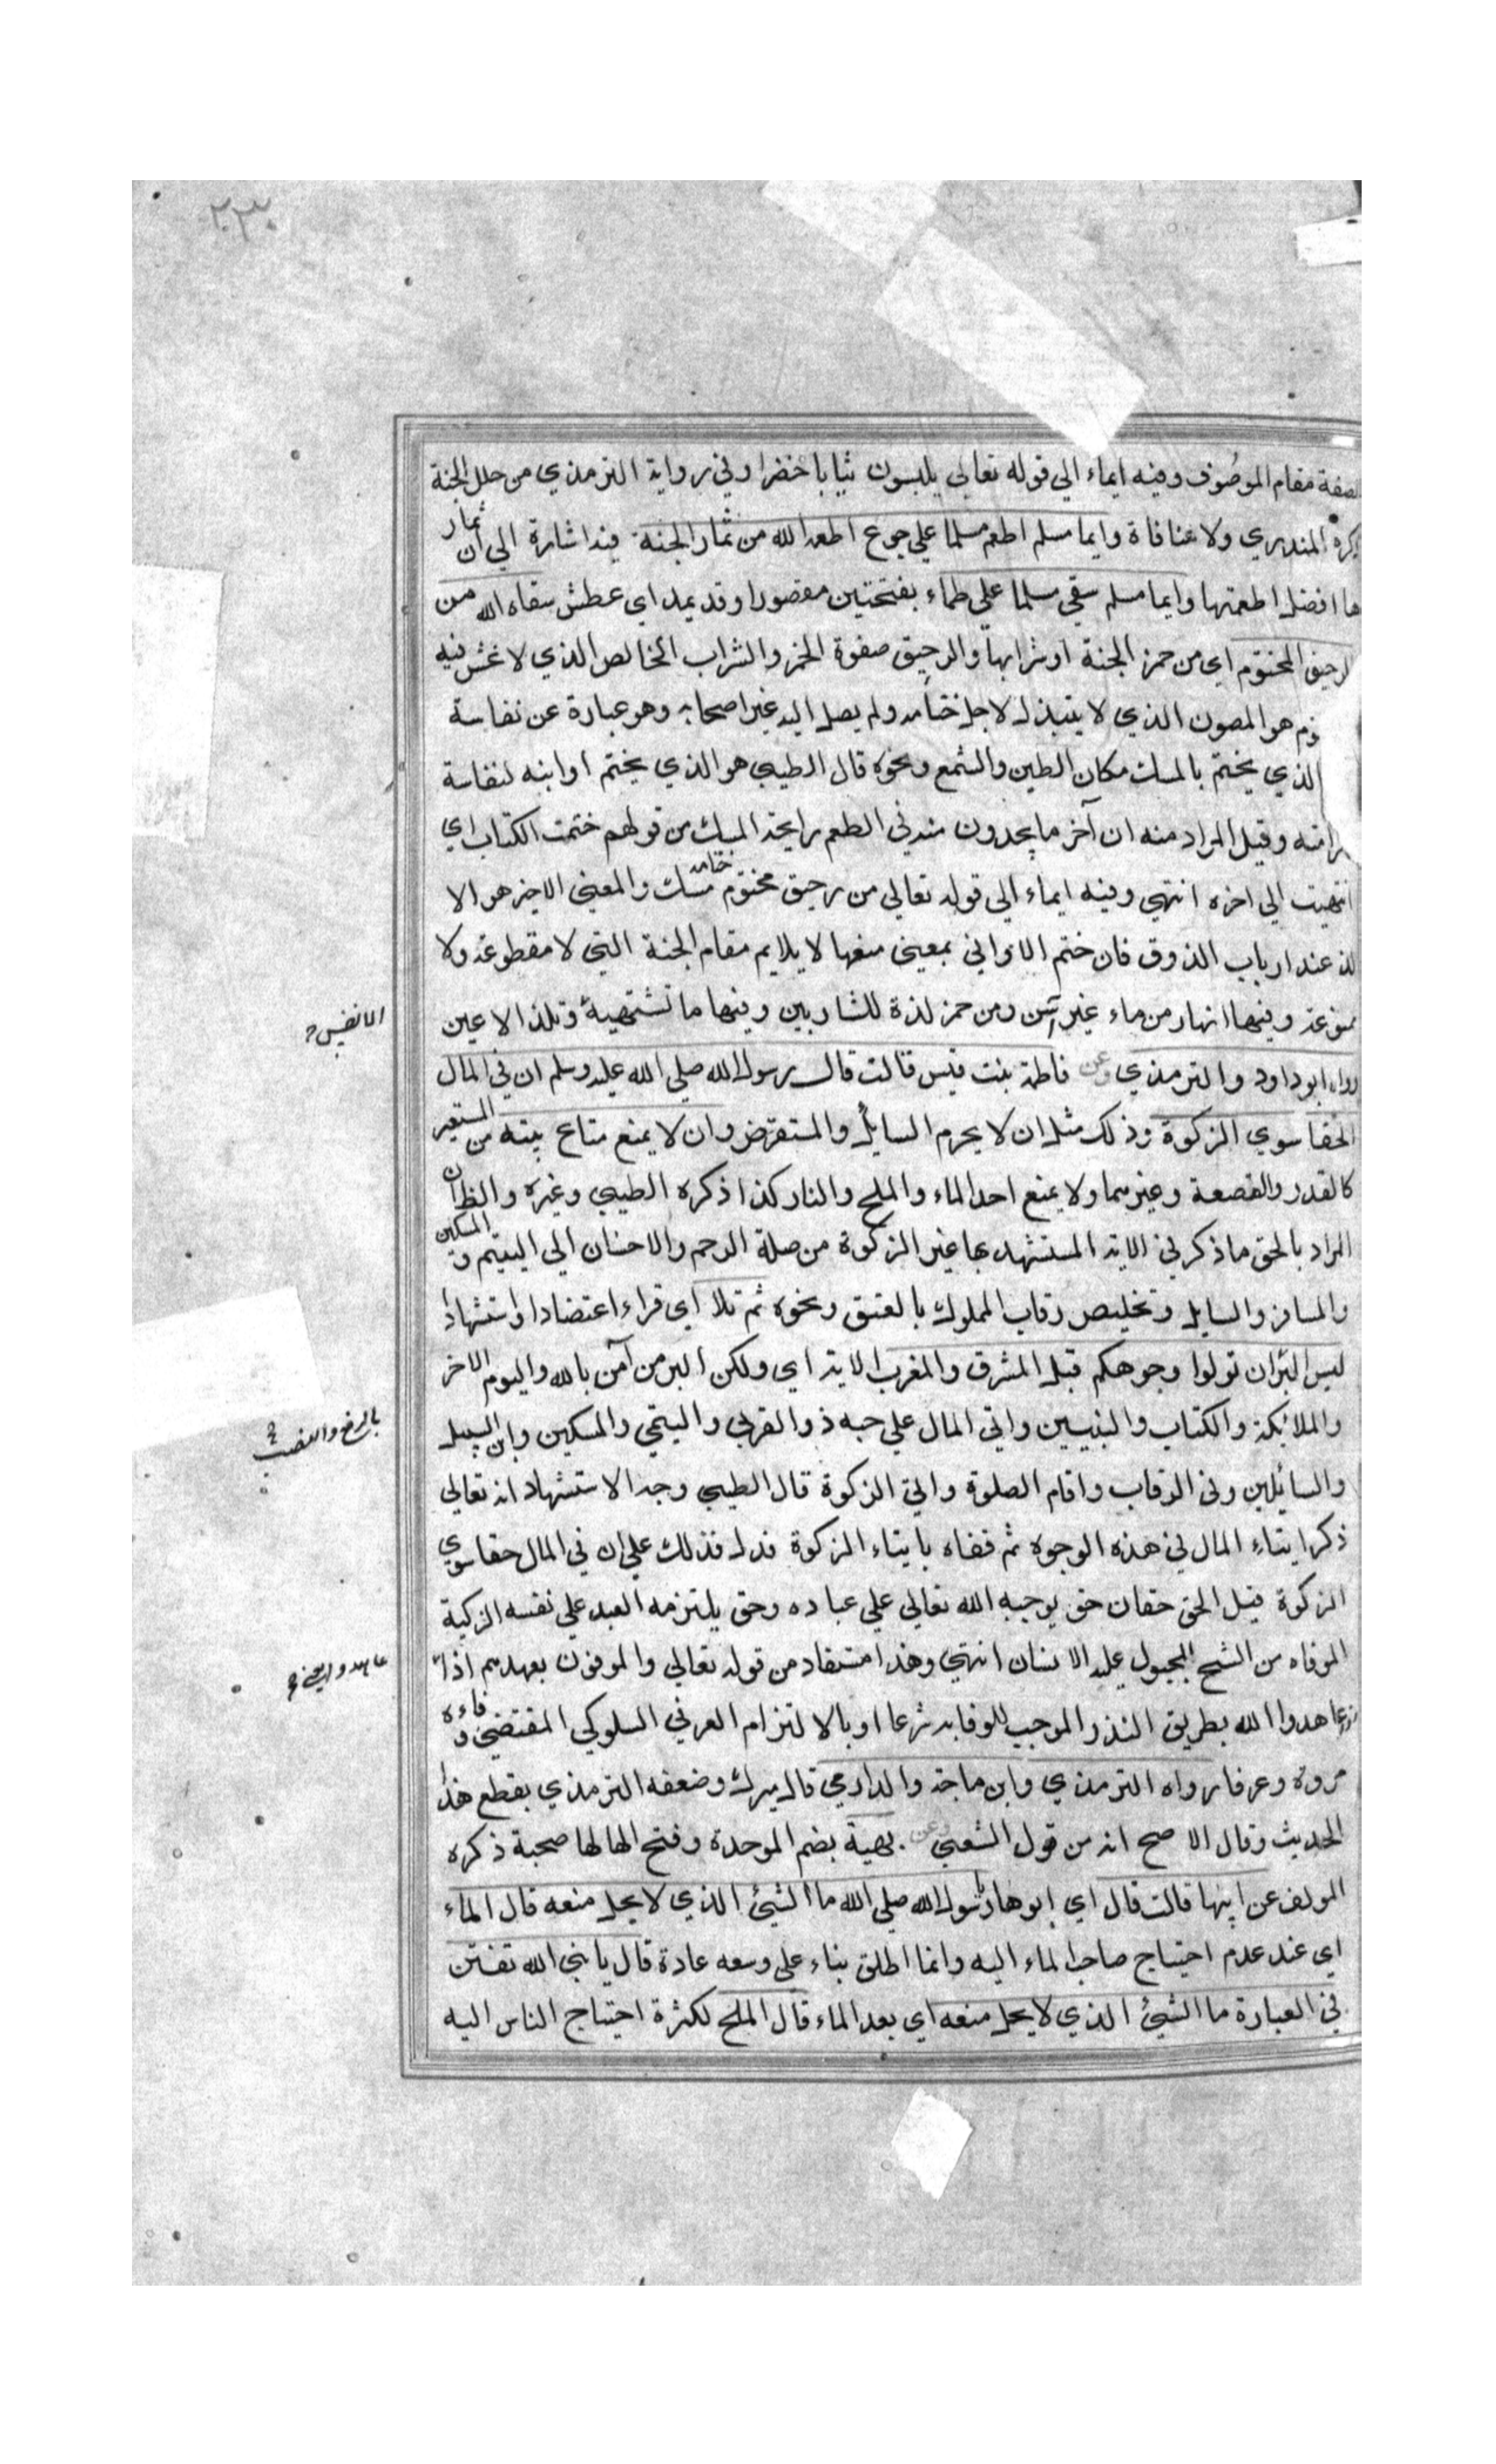 ٢٣٠
لصفة مقام الموصوف وفيه ايماء الي قوله تعالي يلبسون ثيابا خضرا وفي رواية الترمذي من حلل الجنة
ذكره المنذري ولا منافاة وايما مسلم اطعم مسلما علي جوع اطعمه الله من ثمار الجنة فيه اشارة الي ان ثمار
ها افضل اطعمتها وايما مسلم سقي مسلما علي ظماء بفتحتين مقصورا وقد يمد اي عطش سقاه الله من
الرحيق المختوم اي من خمر الجنة او شرابها والرحيق صفوة الخمر والشراب الخالص الذي لا غش فيه
توم هو المصون الذي لا يتبذل لاجل ختامه ولم يصل اليه غير اصحابه وهو عبارة عن نفاسة
الذي يختم بالمسك مكان الطين والشمع ونحوه قال الطيبي هو الذي يختم اوانيه لنفاسة
رامته وقيل المراد منه ان آخر ما يجدون منه في الطعم رايحة المسك من قولهم ختمت الكتاب اي
انتهيت الي اخره انتهي وفيه ايماء الي قوله تعالي من رحيق مختوم ختامه مسك والمعني الاخير هو الا
لذ عند ارباب الذوق فان ختم الاواني بمعني منعها لا يلايم مقام الجنة التي لا مقطوعة ولا
ممنوعة وفيها انهار من ماء غير آسن ومن خمر لذة للشاربين وفيها ما تشتهيه الانفس وتلذ الاعين
رواه ابو داود والترمذي وعن فاطمة بنت قيس قالت قال رسول الله صلي الله عليه وسلم ان في المال
لحقا سوي الزكوة وذلك مثل ان لا يحرم السايل والمستقرض وان لا يمنع متاع بيته من المستعير
كالقدر والقصعة وغيرهما ولا يمنع احد الماء والملح والنار كذا ذكره الطيبي وغيره والظ ان
المراد بالحق ما ذكر في الاية المستشهد بها غير الزكوة من صلة الرحم والاحسان الي اليتيم والمسكين
والمسافر والسايل وتخليص رقاب المملوك بالعتق ونحوه ثم تلا اي قراء اعتضادا واستشهادا
ليس البر ان تولوا وجوهكم قبل المشرق والمغرب الاية اي ولكن البر من آمن بالله واليوم الاخر
والملائكة والكتاب والنبيين واتي المال علي حبه ذوالقربي واليتمي والمسكين وابن السبيل
بالرفع والنصب
والسائلين وفي الرقاب واقام الصلوة واتي الزكوة قال الطيبي وجه الاستشهاد انه تعالي
ذكر ايتاء المال في هذه الوجوه ثم قفاه بايتاء الزكوة فدل فذلك علي ان في المال حقا سوي
الزكوة قيل الحق حقان حق يوجبه الله تعالي علي عباده وحق يلتزمه العبد علي نفسه الزكية
الموقاه من الشح المجبول عليه الانسان انتهي وهذا مستفاد من قوله تعالي والموفون بعهدهم اذا
عاهدوا الله بطريق النذر الموجب للوفا به شرعا او بالالتزام العرفي السلوكي المقتضي وفاءه
مروة وعرفا رواه الترمذي وابن ماجة والدارمي قال ميرك وضعفه الترمذي بقطع هذا
الحديث وقال الاصح انه من قول الشعبي وعن بهية بضم الموحدة وفتح الها لها صحبة ذكره
المولف عن ابيها قالت قال اي ابوها يا رسول الله صلي الله ما الشيئ الذي لا يحل منعه قال الماء
اي عند عدم احتياج صاحب الماء اليه وانما اطلق بناء علي وسعه عادة قال يا نبي الله تفنن
في العبارة ما الشيئ الذي لا يحل منعه اي بعد الماء قال الملح لكثرة احتياج الناس اليه